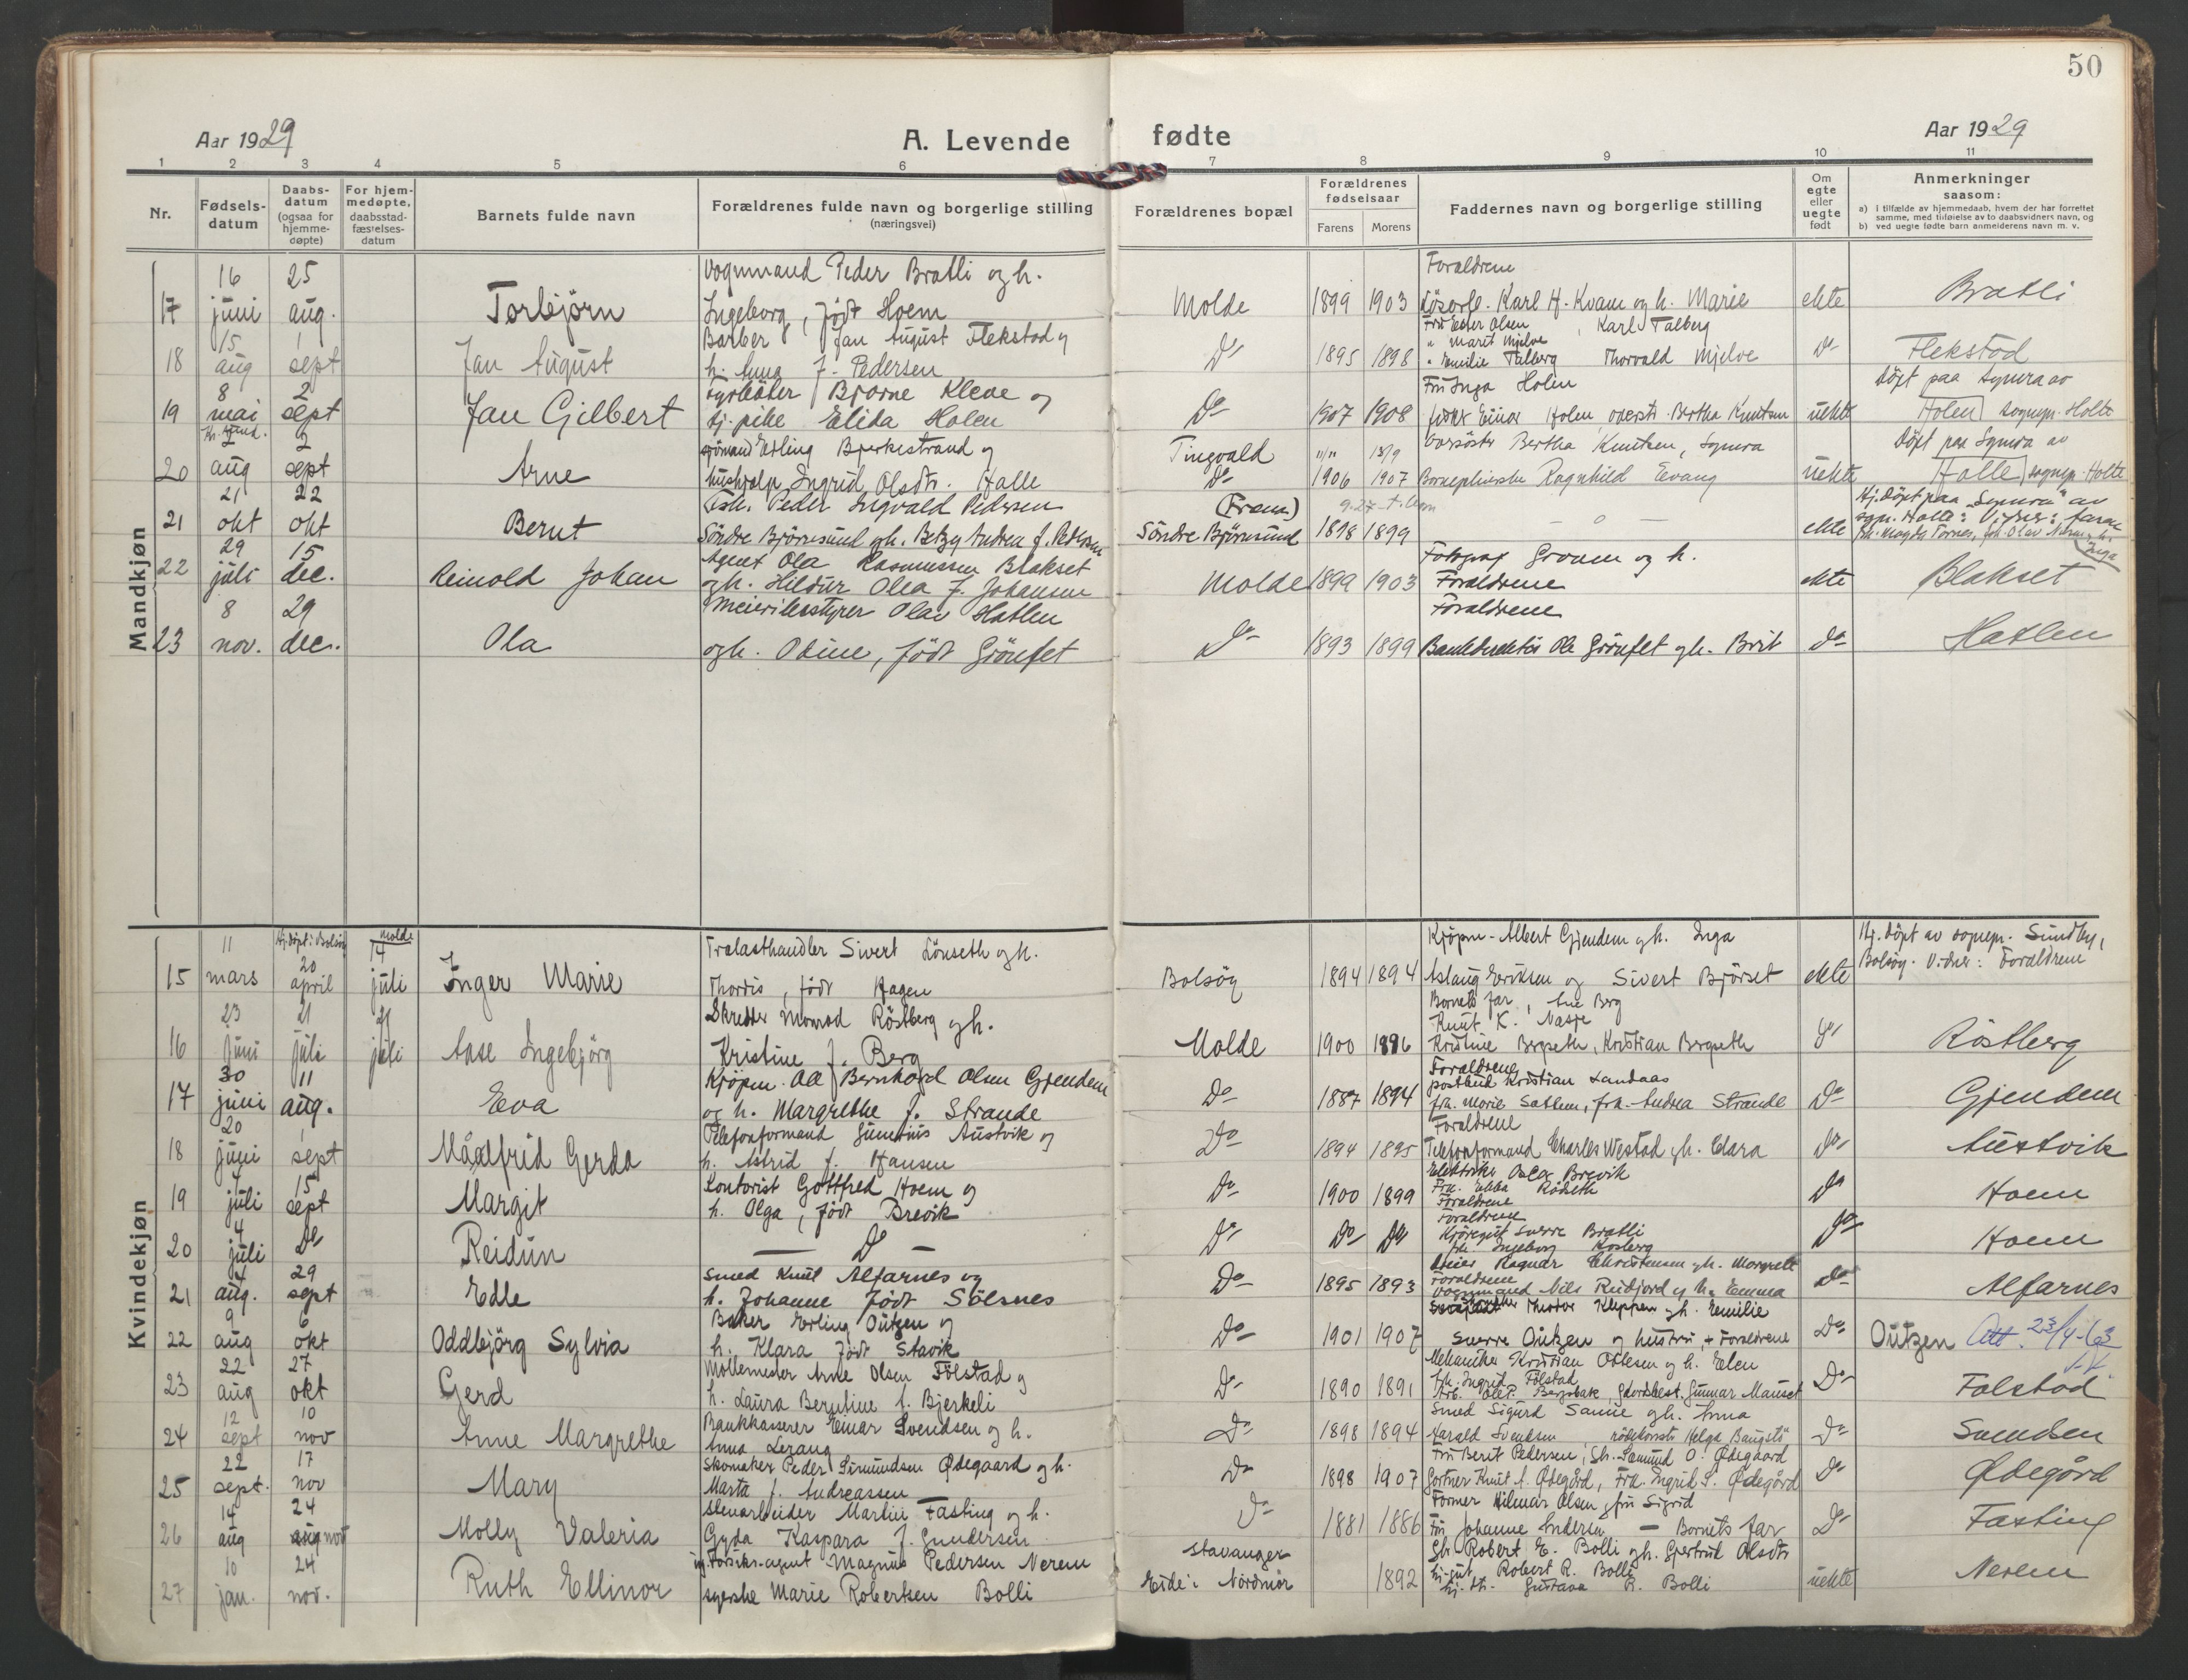 50
Aar 1929
A. Levende fødte
Aar 1929
1 2 3 4 5 6 7 8 9 10 11
Nr.
Fødselsdatum
Daabsdatum (ogsaa for hjemmedøpte)
For hjemmedøpte, daabsstadfæstelsesdatum
Barnets fulde navn
Forældrenes fulde navn og borgerlige stilling
(næringsvei)
Forældrenes bopæl
Forældrenes fødselsaar
Farens Morens
Faddernes navn og borgerlige stilling
Om egte eller uegte født
Anmerkninger
saasom:
a) i tilfælde av hjemmedaab, hvem der har forrettet samme, med tilføielse av to daabsvidners navn, og
b) ved uegte fødte barn anmelderens navn m. v.
Mandkjøn
17 16 juni 25 aug. Torbjørn
Vognmand Peder Bratli og h.
Ingeborg, født Hoem
Molde 1899 1903
Foraldrene
Karl H. Kvam og h. Marie
ekte Bratli
18 15 aug 1 sept Jan August
Barber Jan August Flekstad og
h. Anna f. Pedersen
Do 1895 1898
Ester Olsen, Karl Talberg
" Marit Mjelve
" Emilie Talberg Thorvald Mjelve
Do Flekstad
19 8 mai 2 sept Jan Gilbert
Fyrbøter Bjarne Kleve og
hj. pike Elida Holen
Do 1907 1908
Fru Inga Holen
Einar Holen, Bertha Knutsen
uekte
Döpt paa Symra av
Holen sognepr. Holte
20 2 aug 2 sept Arne
sjömand Erling Bjerkestrand og
hushjelp Ingrid Olsdtr. Halle
Tingvold
Do 1906 1907
oversöster Bertha Knutsen, Symra
Barnepleierske Ragnhild Evang
uekte
Döpt paa Symra av
Halle sognepr. Holte
21 21 okt 22 okt Bernt
Fisk. Peder Ingvald Pedersen
Söndre Björnsund og h. Betzy Andrea f. Pedersen
(Fræna)
Söndre Björnsund 1898 1899
— o —
ekte
Hj. döpt paa "Symra" av
sgpr. Holte: Vidner: faren
22 29 juli 15 dec. Reinold Johan
Agent Ola Rasmussen Blakset
og h. Hildur Olea f. Johansen
Molde 1899 1903
Fotograf Groven og h.
Foraldrene
ekte Blakset
23 8 nov. 29 dec. Ola
Meieribestyrer Olav Hatlen
og h. Odine, født Grönfet
Do 1893 1899
Foraldrene
Bankdirektör Ole Grönfet og h. Brit
do Hatlen
Kvindekjøn
15 11 mars Hj. döpt i Bolsöy 20 april Molde 14 juli Inger Marie
Trælasthandler Sivert Lönseth og h.
Thordis, født Hagen
Bolsöy 1894 1894
Kjøpm. Albert Gjendem og h. Inga
Aslaug Eriksen og Sivert Bjørset
ekte
Hj. döpt av sognepr. Sundby,
Bolsöy. Vidner: Foraldrene
16 23 juni 21 juli 21 juli Aase Ingebjørg
Skredder Monrad Röstberg og h.
Kristine f. Berg
Molde 1900 1896
Barnets far, Ane Berg
Knut K. Nasje
Kristine Bergseth, Kristian Bergseth
Do Röstberg
17 30 juni 11 aug. Eva
Kjøpm. Ole Bernhard Olsen Gjendem
og h. Margrethe f. Strande
Do 1887 1894
Foraldrene
postbud Kristian Landaas
frk. Marie Sattem, frk. Andrea Strande
Do Gjendem
18 20 juni 1 sept Måalfrid Gerda
Telefonformand Austvik og
h. Astrid f. Hansen
Do 1894 1895
Foraldrene
Telefonformand Charles Westad og h. Clara
Do Austvik
19 4 juli 15 sept Margit
Kontorist Gottfred Hoem og
h. Olga, født Brevik
Do 1900 1899
Elektriker Oscar Brevik
Frk. Ebba Röseth
Foraldrene
Do Hoem
20 4 juli Do Reidun
— Do —
Do Do Do
Foraldrene
Kjøregutt Sverre Bratli
frk. Ingeborg Kosberg
Do Hoem
21 4 aug. 29 sept Edle
Smed Knut Alfarnes og
h. Johanne født Sölsnes
Do 1895 1893
Ragnar Christensen og h. Margrete
Foraldrene
Vognmand Nils Reitfjord og h. Emma
Do Alfarnes
22 9 aug 6 okt Oddbjörg Sylvia
Baker Erling Outzen og
h. Klara født Stavik
Do 1901 1907
Theodor Kleppen og h. Emilie
Sverre Outzen og hustru, + Foraldrene
Do Outzen Att. 23/4-63
23 22 aug 27 okt Gerd
Möllemester Arne Olsen Fölstad og
h. Laura Berntine f. Bjerkeli
Do 1890 1891
Mekaniker Kristian Ottesen og h. Elen
frk. Ingrid Fölstad
Gunnar Mauset
Do Fölstad
24 12 sept 10 nov Anne Margrethe
Bankkasserer Einar Svendsen og h.
Anna Lerang
Do 1898 1894
Smed Sigurd Sanne og h. Anna
Harald Svendsen Helga Baugstö
Do Svendsen
25 22 sept. 17 nov Mary
Skomaker Peder Simundsen Ødegaard og h.
Marta f. Andreassen
Do 1898 1907
Fru Berit Pedersen, Gbr. Samund O. Ødegaard
Gartner Knut A. Ødegård, Frk. Ingrid S. Ødegård
Do Ødegård
26 14 aug 24 nov Molly Valeria
Stenarbeider Martin Fasting og h.
Gyda Kaspara f. Gundersen
Do 1881 1886
Former Hilmar Olsen, fru Sigrid
Fru Johanne Andersen — Barnets far
Do Fasting
27 10 jan. 24 nov. Ruth Ellinor
Magnus Pedersen Nerem
syerske Marie Robertsen Bolli
Stavanger
Eide i Nordmör 1892
Gbr. Robert E. Bolli og h. Gjertrud Olsdtr
hj. gut Robert R. Bolli
hj. dtr. Gustava R. Bolli
uekte Nerem